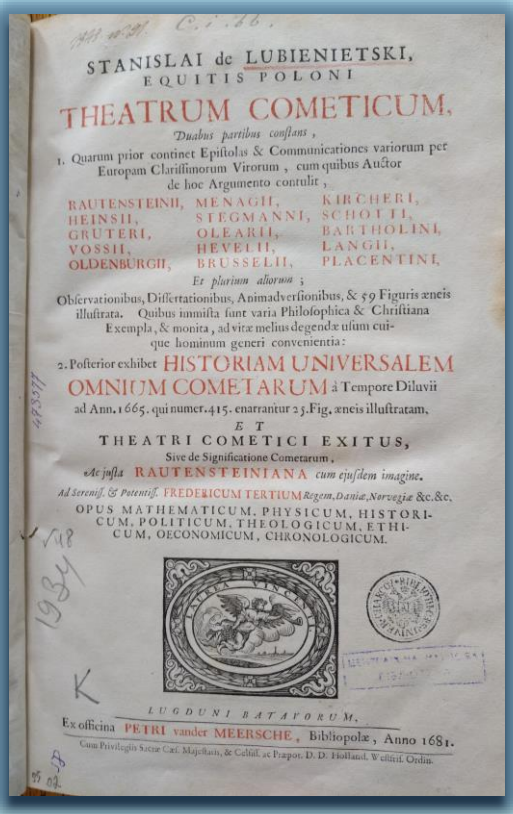 C. i. 66.
STANISLAI de LUBIENIETSKI,
EQUITIS POLONI
THEATRUM COMETICUM,
Duabus partibus conſtans,
1. Quarum prior continet Epiſtolas & Communicationes variorum per
Europam Clariſſimorum Virorum, cum quibus Auctor
de hoc Argumento contulit,
RAUTENSTEINII, MENAGII, KIRCHERI,
HEINSII, STEGMANNI, SCHOTTI,
GRUTERI, OLEARII, BARTHOLINI,
VOSSII, HEVELII, LANGII,
OLDENBURGII, BRUSSELII, PLACENTINI,
Et plurium aliorum;
Obſervationibus, Diſſertationibus, Animadverſionibus, & 59 Figuris æneis
illuſtrata. Quibus immiſta ſunt varia Philoſophica & Chriſtiana
Exempla, & monita, ad vitæ melius degendæ uſum cui-
que hominum generi convenientia:
2. Poſterior exhibet HISTORIAM UNIVERSALEM
OMNIUM COMETARUM à Tempore Diluvii
ad Ann. 1665. qui numer. 415. enarrantur 25. Fig. æneis illuſtratam.
ET
THEATRI COMETICI EXITUS,
Sive de Significatione Cometarum,
Ac juſta RAUTENSTEINIANA cum ejuſdem imagine.
Ad Sereniſſ. & Potentiſſ. FREDERICUM TERTIUM Regem, Daniæ, Norvegiæ &c. &c.
OPUS MATHEMATICUM, PHYSICUM, HISTORI-
CUM, POLITICUM, THEOLOGICUM, ETHI-
CUM, OECONOMICUM, CHRONOLOGICUM.
473577
V18
1934
K
LUGDUNI BATAVORUM,
Ex officina PETRI vander MEERSCHE, Bibliopolæ, Anno 1681.
Cum Privilegiis Sacræ Cæſ. Majeſtatis, & Celſiſſ. ac Præpot. D. D. Holland. Weſtfriſ. Ordin.